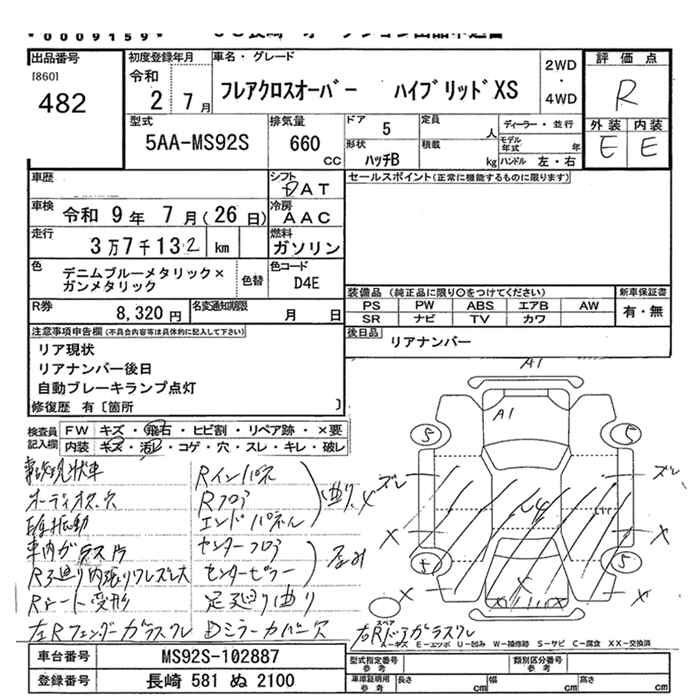 0009159
出品番号
[860]
482
初度登録年月
令和
2 7月
車名・グレード
フレアクロスオーバー ハイブリッドXS
2WD
・
4WD
評価点
R
外装 内装
E E
型式
5AA-MS92S
排気量
660
cc
ドア 5
形状
ハッチB
定員
人
積載
kg
ディーラー・並行
モデル年式 年
ハンドル 左・右
車歴
シフト
DAT
セールスポイント(正常に機能するものに限ります)
車検 令和 9年 7月(26日)
冷房
AAC
走行
3万7千132 km
燃料
ガソリン
色
デニムブルーメタリック×
ガンメタリック
色替
色コード
D4E
R券 8,320円
名変通知期限
月 日
装備品(純正品に限り○をつけてください)
PS PW ABS エアB AW
SR ナビ TV カワ
新車保証書
有・無
後日品
リアナンバー
注意事項申告欄(不具合内容等は具体的に記入して下さい)
リア現状
リアナンバー後日
自動ブレーキランプ点灯
修復歴 有〔箇所 〕
検査員
記入欄
FW キズ・飛石・ヒビ割・リペア跡・×要
内装 キズ・汚レ・コゲ・穴・スレ・キレ・破レ
事故現状車
オーディオ欠
車内ガラス片
R廻り内張りワレズレ欠
Rシート変形
左Rフェンダーガラスワレ
Rインパネ
Rフロア
エンドパネル
曲り、×
センターフロア
センターピラー
歪み
足廻り曲り
Dミラーカバー欠
右RドアガラスワレA1
A1
5 5
ズレ ズレ
× ×
× ×
5 5
スペア
A-キズ E-エクボ U-凹み W-補修跡 S-サビ C-腐食 XX-交換済
車台番号 MS92S-102887
登録番号 長崎 581 ぬ 2100
型式指定番号
参考
類別区分番号
参考
車庫証明用
参考
長さ cm 幅 cm 高さ cm